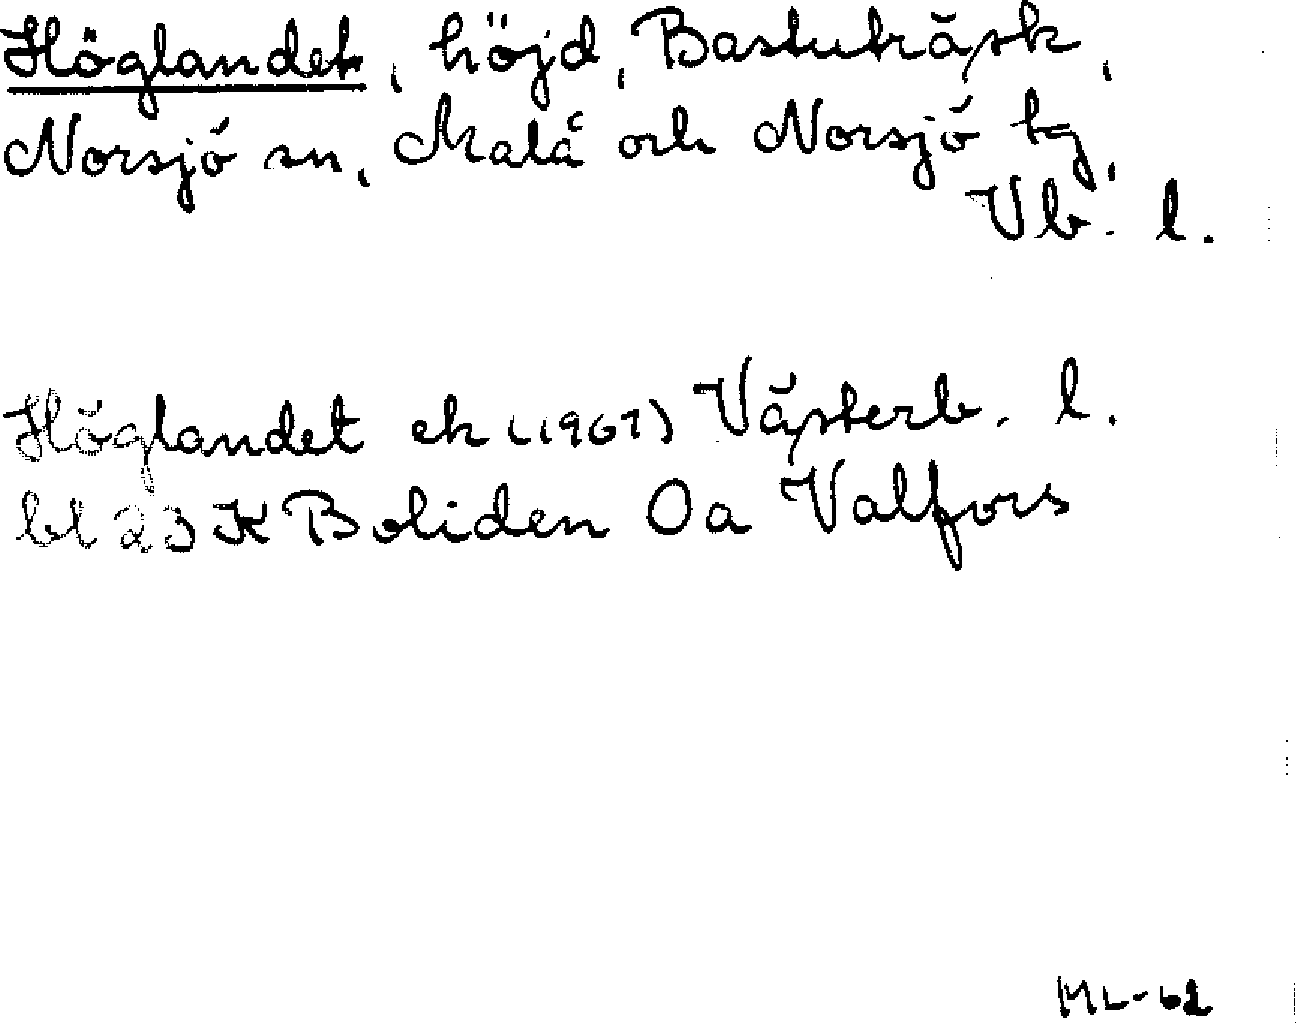 Höglandet, höjd, Bastuträsk,
Norsjö sn, Malå och Norsjö tg,
Vb. l.
Höglandet ek (1961) Västerb. l.
bl 23 K Boliden Oa Valfors
ML-62